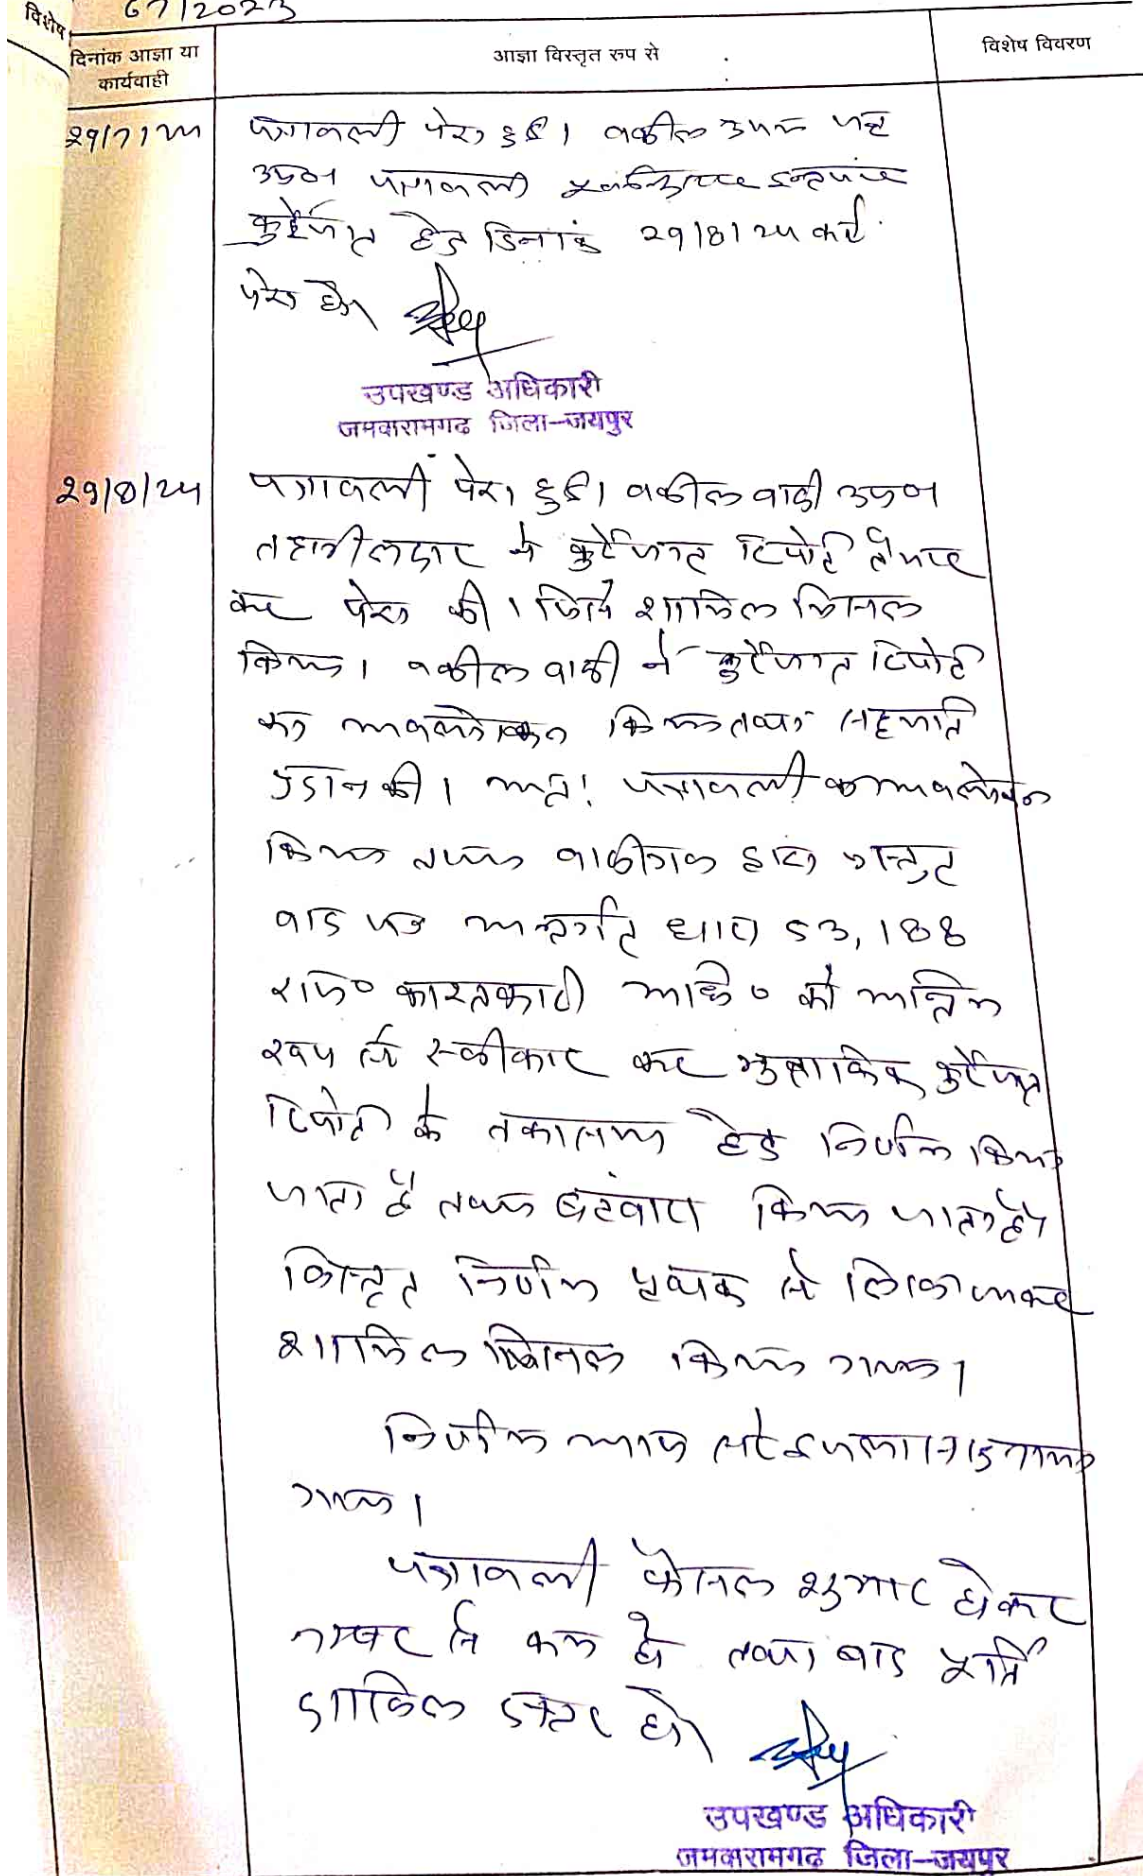 विशेष
67/2023
दिनांक आज्ञा या
कार्यवाही
आज्ञा विस्तृत रुप से
विशेष विवरण
29/7/24 पत्रावली पेश हुई। वकील उभय पक्ष
उप० पत्रावली
कुर्रेजात हेतु दिनांक 29/8/24 को
पेश हो।
उपखण्ड अधिकारी
जमवारामगढ जिला-जयपुर
29/8/24 पत्रावली पेश हुई। वकील वादी उप०
तहसीलदार ने कुर्रेजात रिपोर्ट तैयार
कर पेश की। जिसे शामिल मिसल
किया। वकील वादी ने कुर्रेजात रिपोर्ट
का अवलोकन किया तथा सहमति
प्रदान की। अतः पत्रावली का अवलोकन
किया तथा वादीगण द्वारा प्रस्तुत
वाद पत्र अन्तर्गत धारा 53, 188
राज० काश्तकारी अधि० को अन्तिम
रूप से स्वीकार कर मुताबिक कुर्रेजात
रिपोर्ट के तकासमा हेतु निर्णय किया
जाता है तथा बंटवारा किया जाता है।
विस्तृत निर्णय पृथक से लिखा जाकर
शामिल मिसल किया गया।
निर्णय आज सरे इजलास सुनाया
गया।
पत्रावली फैसल शुमार होकर
नम्बर से कम हो तथा बाद पूर्ति
दाखिल दफ्तर हो।
उपखण्ड अधिकारी
जमवारामगढ जिला-जयपुर